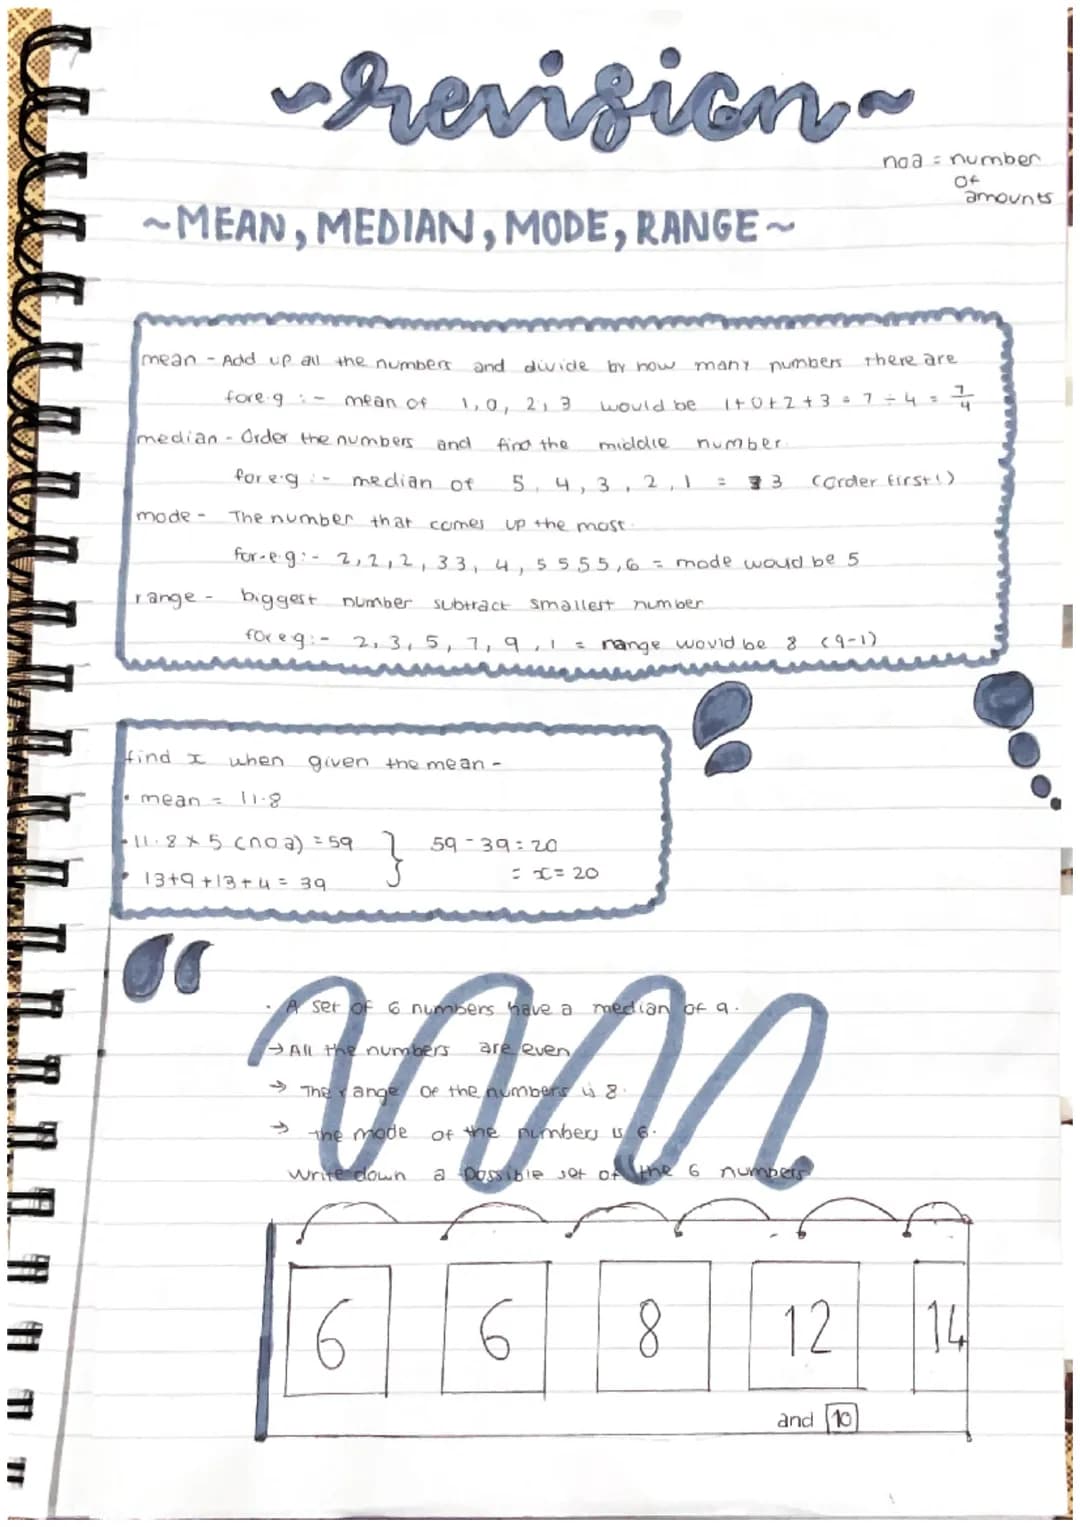 ~revision~
noa = number
of
amounts
~MEAN, MEDIAN, MODE, RANGE~
mean - Add up all the numbers and divide by how many numbers there are
for e.g :- mean of 1, 0, 2, 3 would be 1+0+2+3 = 7 ÷ 4 = 7/4
median - Order the numbers and find the middle number.
for e.g :- median of 5, 4, 3, 2, 1 = 3 (order first!)
mode - The number that comes up the most.
for e.g :- 2, 2, 2, 33, 4, 5 5 5 5, 6 = mode would be 5
range - biggest number subtract smallest number
for e.g :- 2, 3, 5, 7, 9, 1 = range would be 8 (9-1)
find x when given the mean -
• mean = 11.8
• 11.8 × 5 (noa) = 59 } 59 - 39 = 20
• 13+9+13+4 = 39 = x = 20
· A set of 6 numbers have a median of 9.
→ All the numbers are even
→ The range of the numbers is 8.
→ the mode of the numbers is 6.
Write down a possible set of the 6 numbers
6 6 8 12 14
and 10